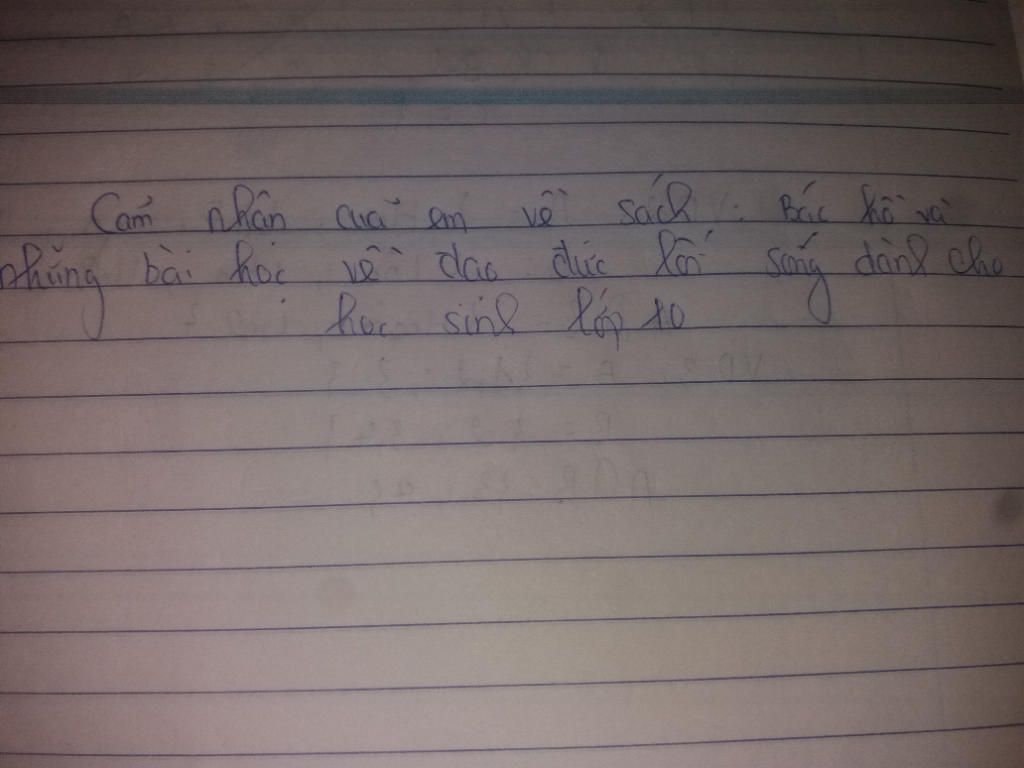 Cảm nhận của em về sách : Bác hồ và
những bài học về đạo đức lối sống dành cho
học sinh lớp 10